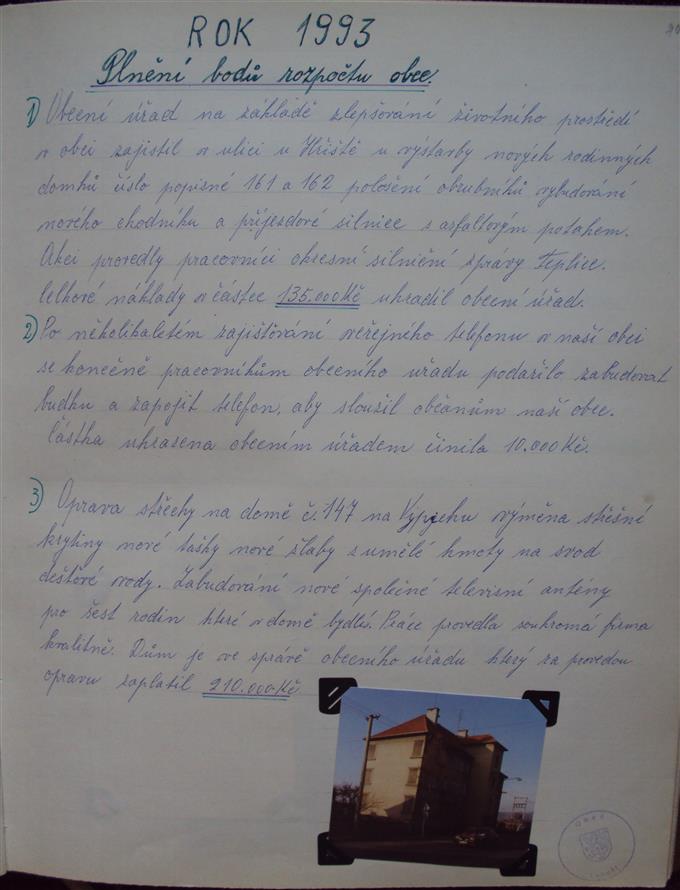 ROK 1993
Plnění bodů rozpočtu obce.
1) Obecní úřad na základě zlepšování životního prostředí
v obci zajistil v ulici u Hřiště u výstavby nových rodinných
domků číslo popisné 161 a 162 položení obrubníků vybudování
nového chodníku a příjezdové silnice s asfaltovým potahem.
Akci provedly pracovníci okresní silniční správy Teplice.
Celkové náklady v částce 135.000 Kč uhradil obecní úřad.
2) Po několikaletém zajišťování veřejného telefonu v naší obci
se konečně pracovníkům obecního úřadu podařilo zabudovat
budku a zapojit telefon, aby sloužil občanům naší obce.
Částka uhrasena obecním úřadem činila 10.000 Kč.
3) Oprava střechy na domě č. 147 na Výpjehu výměna střešní
krytiny nové tašky nové žlaby z umělé hmoty na svod
dešťové vody. Zabudování nové společné televisní antény
pro šest rodin které v domě bydlí. Práce provedla soukromá firma
kvalitně. Dům je ve správě obecního úřadu který za provedou
opravu zaplatil 210.000 Kč